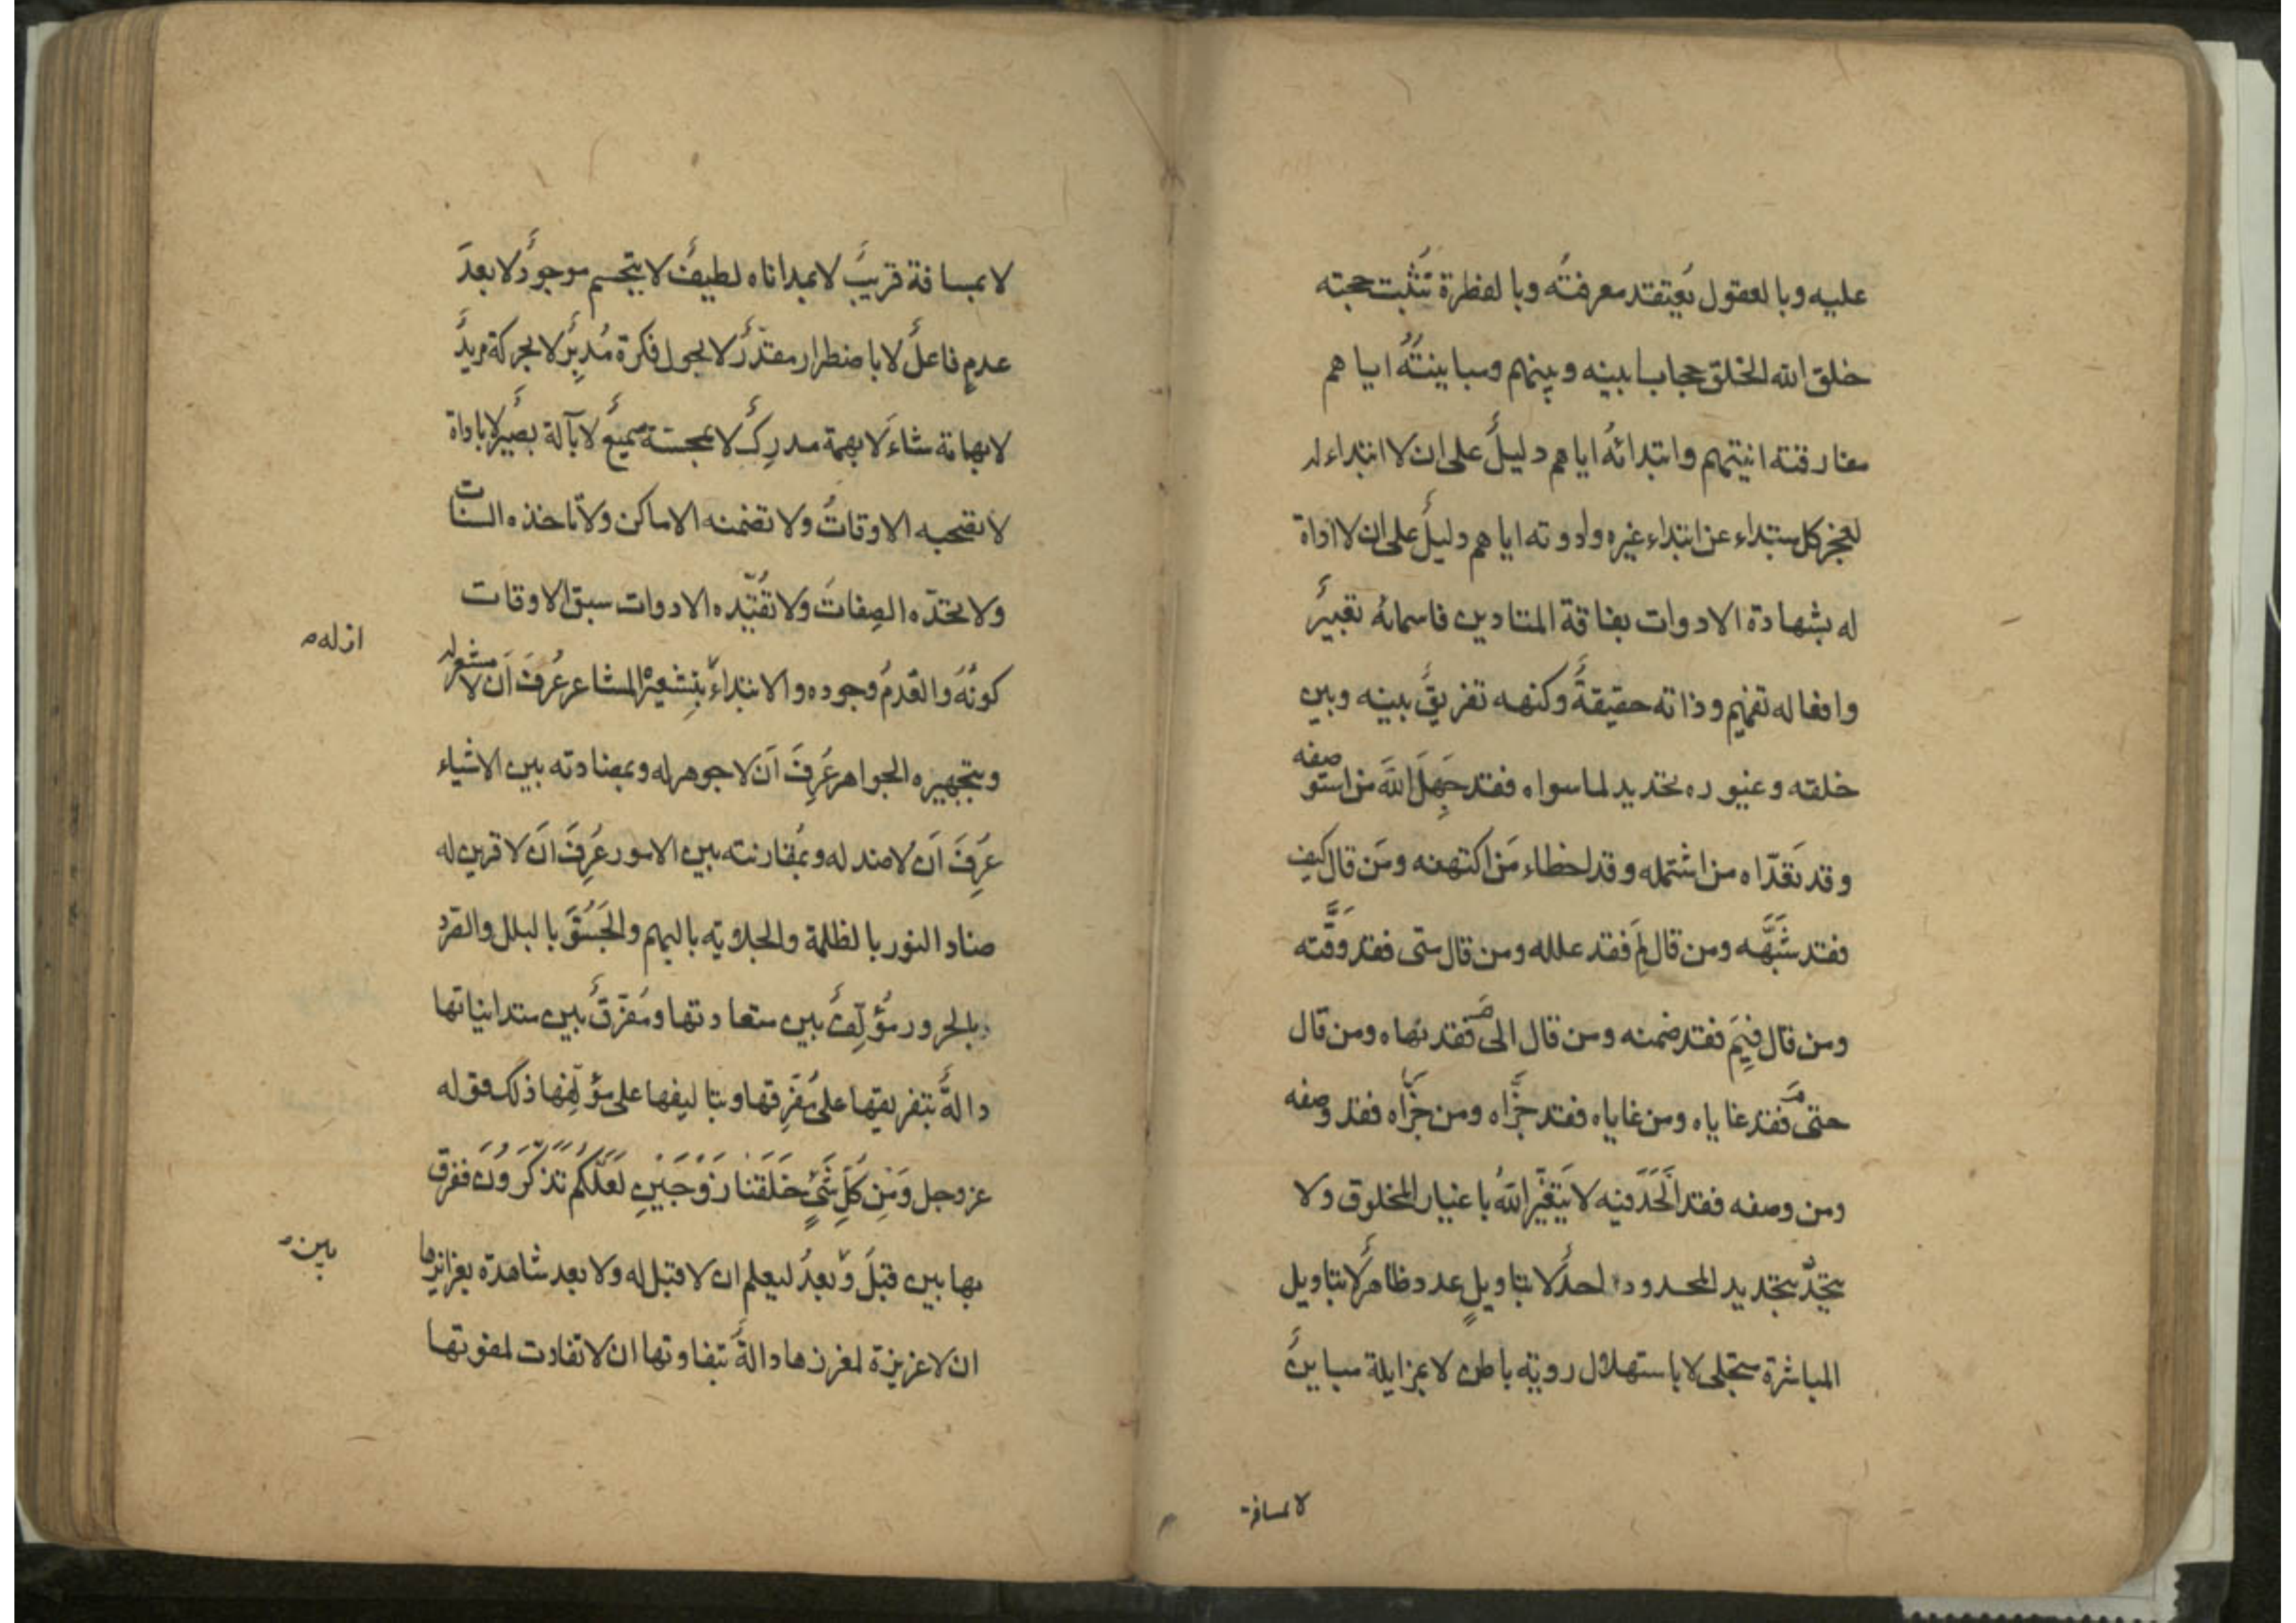 عليه وبالعقول يُعتقد معرفتُه وبالفطرة تَثبت حجته
خلق الله الخلق حجابا بينه وبينهم ومباينتُهُ اياهم
مفارقته انيتهم وابتدائهُ اياهم دليلٌ على ان لا ابتداء له
لعجز كل مبتداء عن ابتداء غيره وادوته اياهم دليلٌ على ان لا اداة
له بشهادة الادوات بفاقة المتادين فاسمائه تعبيرٌ
وافعاله تفهيم وذاته حقيقةٌ وكنهه تفريقٌ بينه وبين
خلقه وغيوره تحديد لما سواه فقد جَهِلَ اللهَ من استوصفه
وقد تَعَدّاه من اشتمله وقد اخطاء مَن اكتهنه ومَن قال كيف
فقد شَبَّهَه ومن قال لِمَ فقد علله ومن قال متى فقد وَقَّته
ومن قال فِيمَ فقد ضمنه ومن قال الى مَ فقد نهاه ومن قال
حتى مَ فقد غاياه ومن غاياه فقد جزَّاه ومن جزَّاه فقد وصفه
ومن وصفه فقد اَلحَدَ فيه لا يَتَغيّر اللهُ باغيار المخلوق ولا
يتحدّ بتحديد المحدود احدٌ لا بتاويلِ عدد ظاهرٌ لا بتاويل
المباشرة متجلى لا باستهلال روية باطن لا بمزايلة مباينٌ
لا بمسافة
لا بمسافة قريبٌ لا بمداناه لطيفٌ لا بتجسم موجودٌ لا بعدَ
عدمٍ فاعلٌ لا باضطرار مقدّرٌ لا بجول فكرة مُدبِّرٌ لا بحركة مريدٌ
لا بهامة شاءَ لا بهمة مدرِكٌ لا بمجسّة سميعٌ لا بآلة بصيرٌ لا باداة
لا تصحبه الاوقاتُ ولا تضمنه الاماكن ولا تاخذه السنات
ولا تحدّه الصِفاتُ ولا تُقيّده الادوات سبق الاوقات
كونُهُ والعَدمُ وجوده والابتداءُ بِتشعيرهِ المشاعر عُرِفَ اَن لا مشعر له
ازله
وبتجهيره الجواهر عُرِفَ اَن لا جوهر له وبمضادته بين الاشياء
عُرِفَ اَن لا ضد له وبُمقارنته بين الامور عُرِفَ اَن لا قرين له
ضاد النور بالظلمة والجلاية بالبهم والجَسُوَ بالبلل والصّرد
بالحرور مُؤلِّفٌ بين متعادتها ومُفرّقٌ بين متدانياتها
دالةٌ بتفريقها على مُفَرِّقها وبتاليفها على مؤلِّفها ذلك قوله
عز وجل وَمِن كُلِّ شَيْءٍ خَلَقْنَا زَوْجَيْنِ لَعَلَّكُمْ تَذَكَّرُونَ ففرق
بها بين قبلَ وَبعدُ ليعلم ان لا قبل له ولا بعد شاهدة بغرائزها
بين
ان لا غريزة لمغرزها دالةٌ بتفاوتها ان لا تفاوت لمفوتها